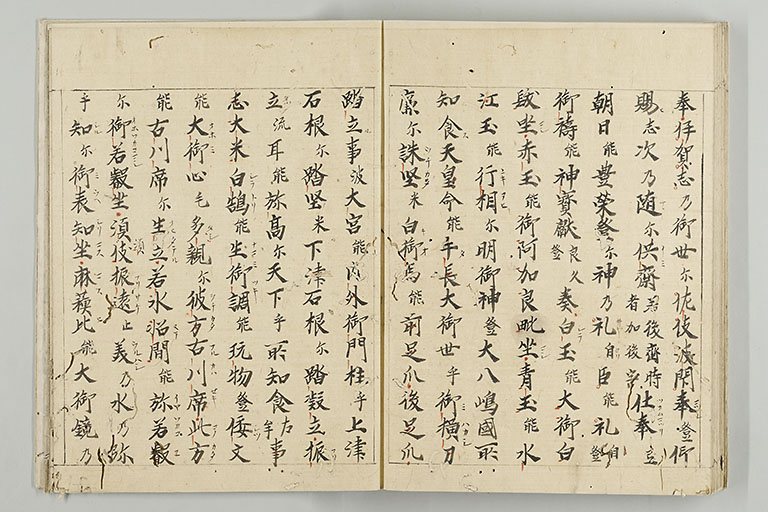 奉伊賀志乃御世尓佐伎波閇奉登仰
賜志次乃随尓供齋若後齋時者加後字仕奉立
朝日能豊榮登尓神乃礼自臣能礼自登
御禱能神寶獻登良久奏白玉能大御白
髮坐赤玉能御阿加良毗坐青玉能水
江玉能行相尓明御神登大八嶋國所
知食天皇命能手長大御世乎御横刀
廣尓誅堅米白御馬能前足爪後足爪
踏立事波大宮能内外御門柱乎上津
石根尓踏堅米下津石根尓踏凝立振
立流耳能弥高尓天下乎所知食左牟事
志大米白鵠能生御調能玩物登倭文
能大御心毛多親尓彼方古川席此方
能古川席尓生立若水沼間能弥若叡
尓御若叡坐須伎振遠止美乃水乃弥
乎知尓御表知坐麻蘓比能大御鏡乃